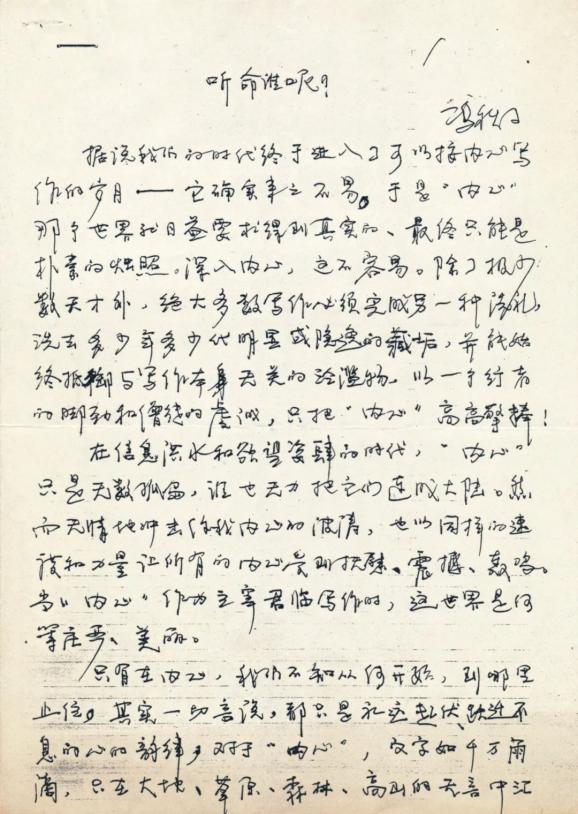 听命谁呢？
冯秋子
据说我们的时代终于进入了可以按内心写
作的岁月——它确实来之不易。于是“内心”
那个世界就日益要求得到真实的、最终只能是
朴素的烛照。深入内心，这不容易。除了极少
数天才外，绝大多数写作必须完成另一种洗礼，
洗去多少年多少代明显或隐逸的藏垢，并能始
终抵御与写作本身无关的泛滥物，以一个行者
的脚劲和僧徒的虔诚，只把“内心”高高擎捧！
在信息洪水和欲望恣肆的时代，“内心”
只是无数孤岛，谁也无力把它们连成大陆。然
而无情地冲击你我内心的波涛，也以同样的速
度和力量让所有的内心受到扶壁、震撼、轰鸣。
当“内心”作为主宰君临写作时，这世界是何
等庄严、美丽。
只有在内心，我们不知从何开始，到哪里
止住。其实一切言说，都只是永远起伏跳跃不
息的心的韵律，对于“内心”，文字如千万雨
滴，只在大地、草原、森林、高山的无言中汇